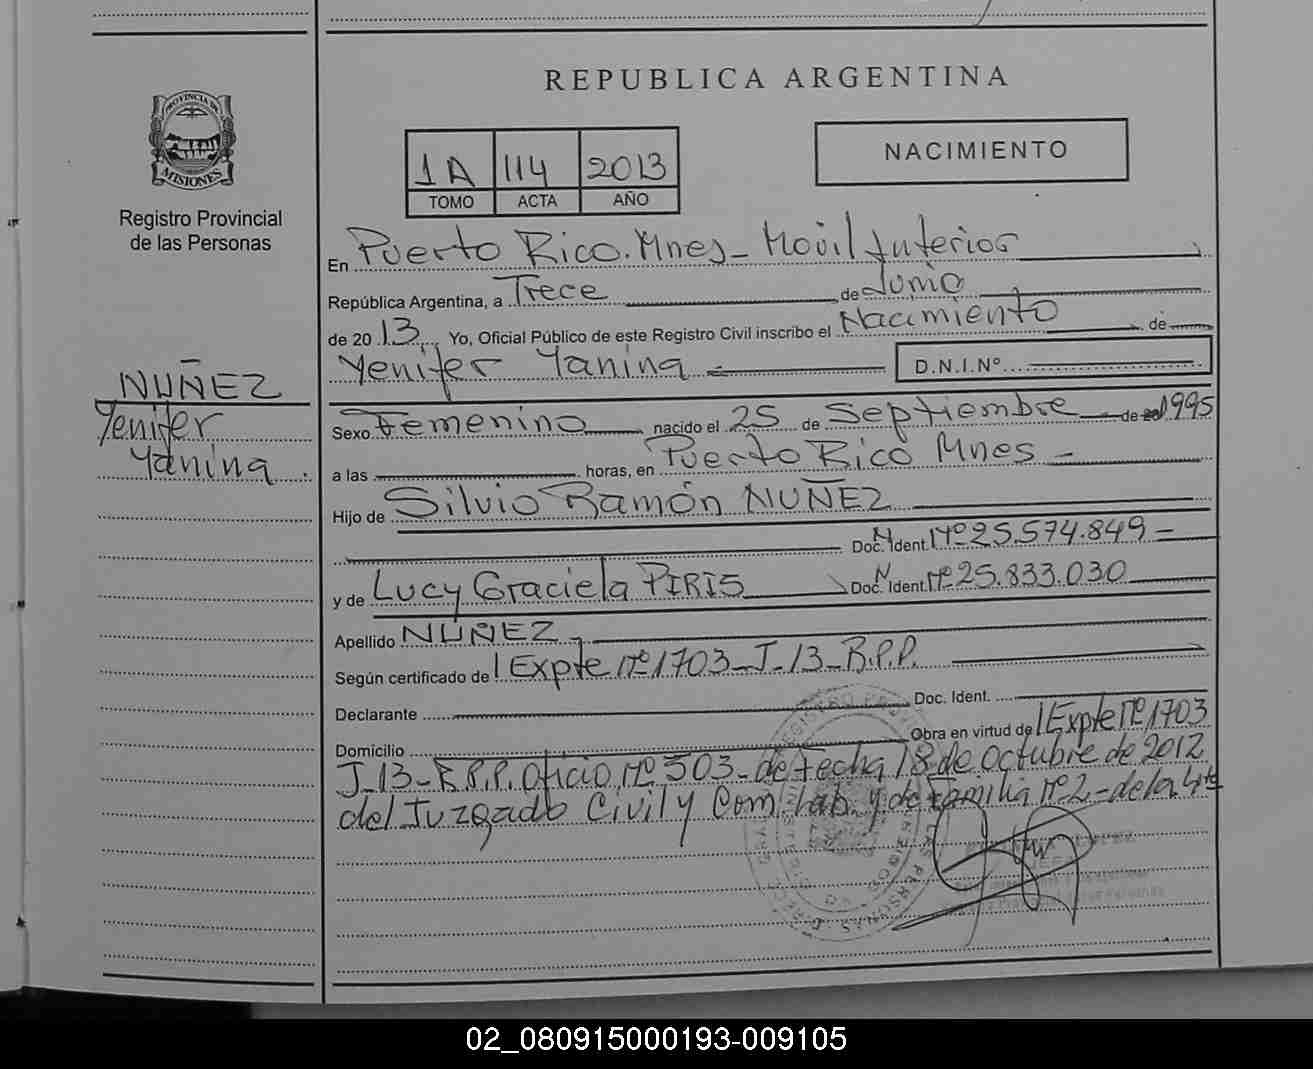 REPUBLICA ARGENTINA
PROVINCIA DE
MISIONES
Registro Provincial
de las Personas
1A 114 2013
TOMO ACTA AÑO
NACIMIENTO
En Puerto Rico. Mnes - Móvil Interior
República Argentina, a Trece de Junio
de 2013 Yo, Oficial Público de este Registro Civil inscribo el Nacimiento de
Yenifer Yanina D.N.I.Nº
NUÑEZ
Yenifer
Yanina
Sexo Femenino nacido el 25 de Septiembre de 1995
a las horas, en Puerto Rico Mnes -
Hijo de Silvio Ramón NUÑEZ
Doc. N. Ident. Nº 25.574.849 -
y de Lucy Graciela PIRIS Doc. N Ident. Nº 25.833.030
Apellido NUÑEZ -
Según certificado de Expte Nº 1703 - J - 13 - R.P.P.
Declarante Doc. Ident.
Domicilio Obra en virtud de Expte Nº 1703
J-13-R.P.P. Oficio, Nº 503 - de fecha 18 de Octubre de 2012
del Juzgado Civil y Com. Lab. y de Familia Nº 2 - de la 4ta
02_080915000193-009105